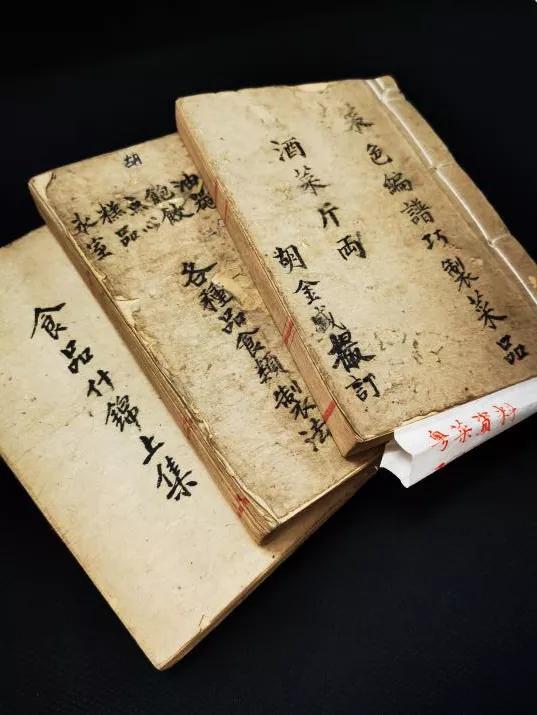 菜色編譜巧製菜品
酒菜斤両
胡金 訂
胡
油器
飽餃
点心
糕品
氷室
各種品食類製法
食品什錦上集
粤菜資料